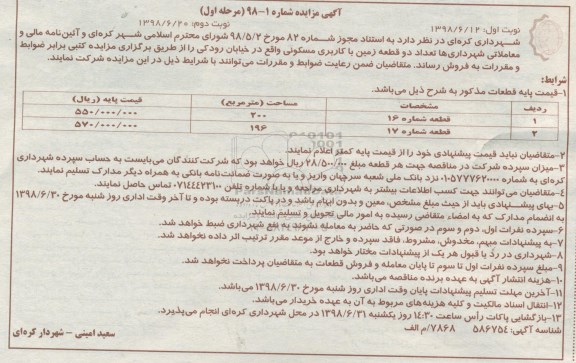 آگهی مزایده شماره ۱-۹۸ (مرحله اول)
نوبت اول: ۱۳۹۸/۶/۱۲ نوبت دوم: ۱۳۹۸/۶/۲۰
شهرداری کره‌ای در نظر دارد به استناد مجوز شماره ۸۲ مورخ ۹۸/۵/۲ شورای محترم اسلامی شهر کره‌ای و آئین‌نامه مالی و
معاملاتی شهرداری‌ها تعداد دو قطعه زمین با کاربری مسکونی واقع در خیابان رودکی را از طریق برگزاری مزایده کتبی برابر ضوابط
و مقررات به فروش رساند. متقاضیان ضمن رعایت ضوابط و مقررات می‌توانند با شرایط ذیل در این مزایده شرکت نمایند.
شرایط:
۱-قیمت پایه قطعات مذکور به شرح ذیل می‌باشد.
ردیف مشخصات مساحت (مترمربع) قیمت پایه (ریال)
۱ قطعه شماره ۱۶ ۲۰۰ ۵۵۰/۰۰۰/۰۰۰
۲ قطعه شماره ۱۷ ۱۹۶ ۵۷۰/۰۰۰/۰۰۰
۲-متقاضیان نباید قیمت پیشنهادی خود را از قیمت پایه کمتر اعلام نمایند.
۳-میزان سپرده شرکت در مناقصه جهت هر قطعه مبلغ ۲۸/۵۰۰/۰۰۰ ریال خواهد بود که شرکت کنندگان می‌بایست به حساب سپرده شهرداری
کره‌ای به شماره ۰۱۰۵۷۷۷۶۲۰۰۰ نزد بانک ملی شعبه سرچهان واریز و یا به صورت ضمانت‌نامه بانکی به همراه دیگر مدارک تسلیم نمایند.
۴-متقاضیان می‌توانند جهت کسب اطلاعات بیشتر به شهرداری مراجعه و یا با شماره تلفن ۰۷۱۴۴۴۲۳۱۰۰ تماس حاصل نمایند.
۵-بهای پیشنهادی باید از حیث مبلغ مشخص، معین و بدون ابهام باشد و در پاکت دربسته بوده و تا آخر وقت اداری روز شنبه مورخ ۱۳۹۸/۶/۳۰
به انضمام مدارک که به امضاء متقاضی رسیده به امور مالی تحویل و تسلیم نمایند.
۶-سپرده نفرات اول، دوم و سوم در صورتی که حاضر به معامله نشوند به نفع شهرداری ضبط خواهد شد.
۷-به پیشنهادات مبهم، مخدوش، مشروط، فاقد سپرده و خارج از موعد مقرر ترتیب اثر داده نخواهد شد.
۸-شهرداری در رد یا قبول هر یک از پیشنهادات مختار خواهد بود.
۹-مبلغ سپرده نفرات اول تا سوم تا پایان معامله و فروش قطعات به متقاضیان پرداخت نخواهد شد.
۱۰-هزینه انتشار آگهی به عهده برنده مناقصه می‌باشد.
۱۱-آخرین مهلت تسلیم پیشنهادات پایان وقت اداری روز شنبه مورخ ۱۳۹۸/۶/۳۰ می‌باشد.
۱۲-انتقال اسناد مالکیت و کلیه هزینه‌های مربوط به آن به عهده خریدار می‌باشد.
۱۳-بازگشایی پاکات رأس ساعت ۱۴:۳۰ روز یکشنبه ۱۳۹۸/۶/۳۱ در محل شهرداری کره‌ای انجام می‌پذیرد.
شناسه آگهی: ۵۸۶۷۵۴ ۷۸۶۸/م الف
سعید امینی - شهردار کره‌ای